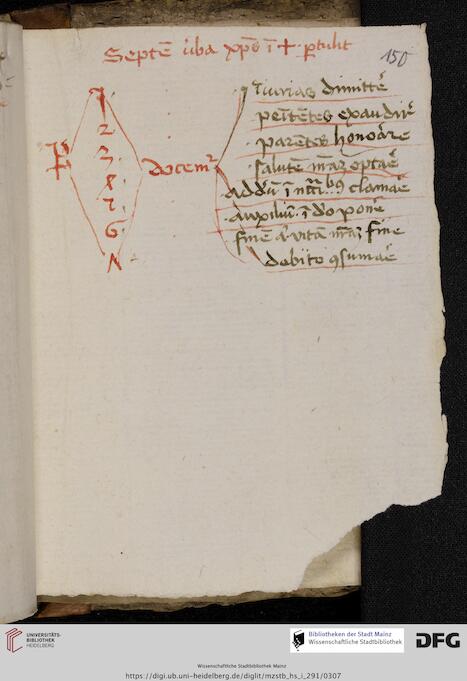 Septē ūba xp̄s ī + ꝑtulit
150
P
1
2
3.
8
7.
6
N
docemᷣ
īiurias dimittē
penitētes exaudirē
parentes honorāre
salutē optāē
clamāē
auxiliū. ī do ponē
finē vitā fine
debito ꝯsumāē
UNIVERSITÄTS-
BIBLIOTHEK
HEIDELBERG
Bibliotheken der Stadt Mainz
Wissenschaftliche Stadtbibliothek
DFG
Wissenschaftliche Stadtbibliothek Mainz
https://digi.ub.uni-heidelberg.de/diglit/mzstb_hs_i_291/0307